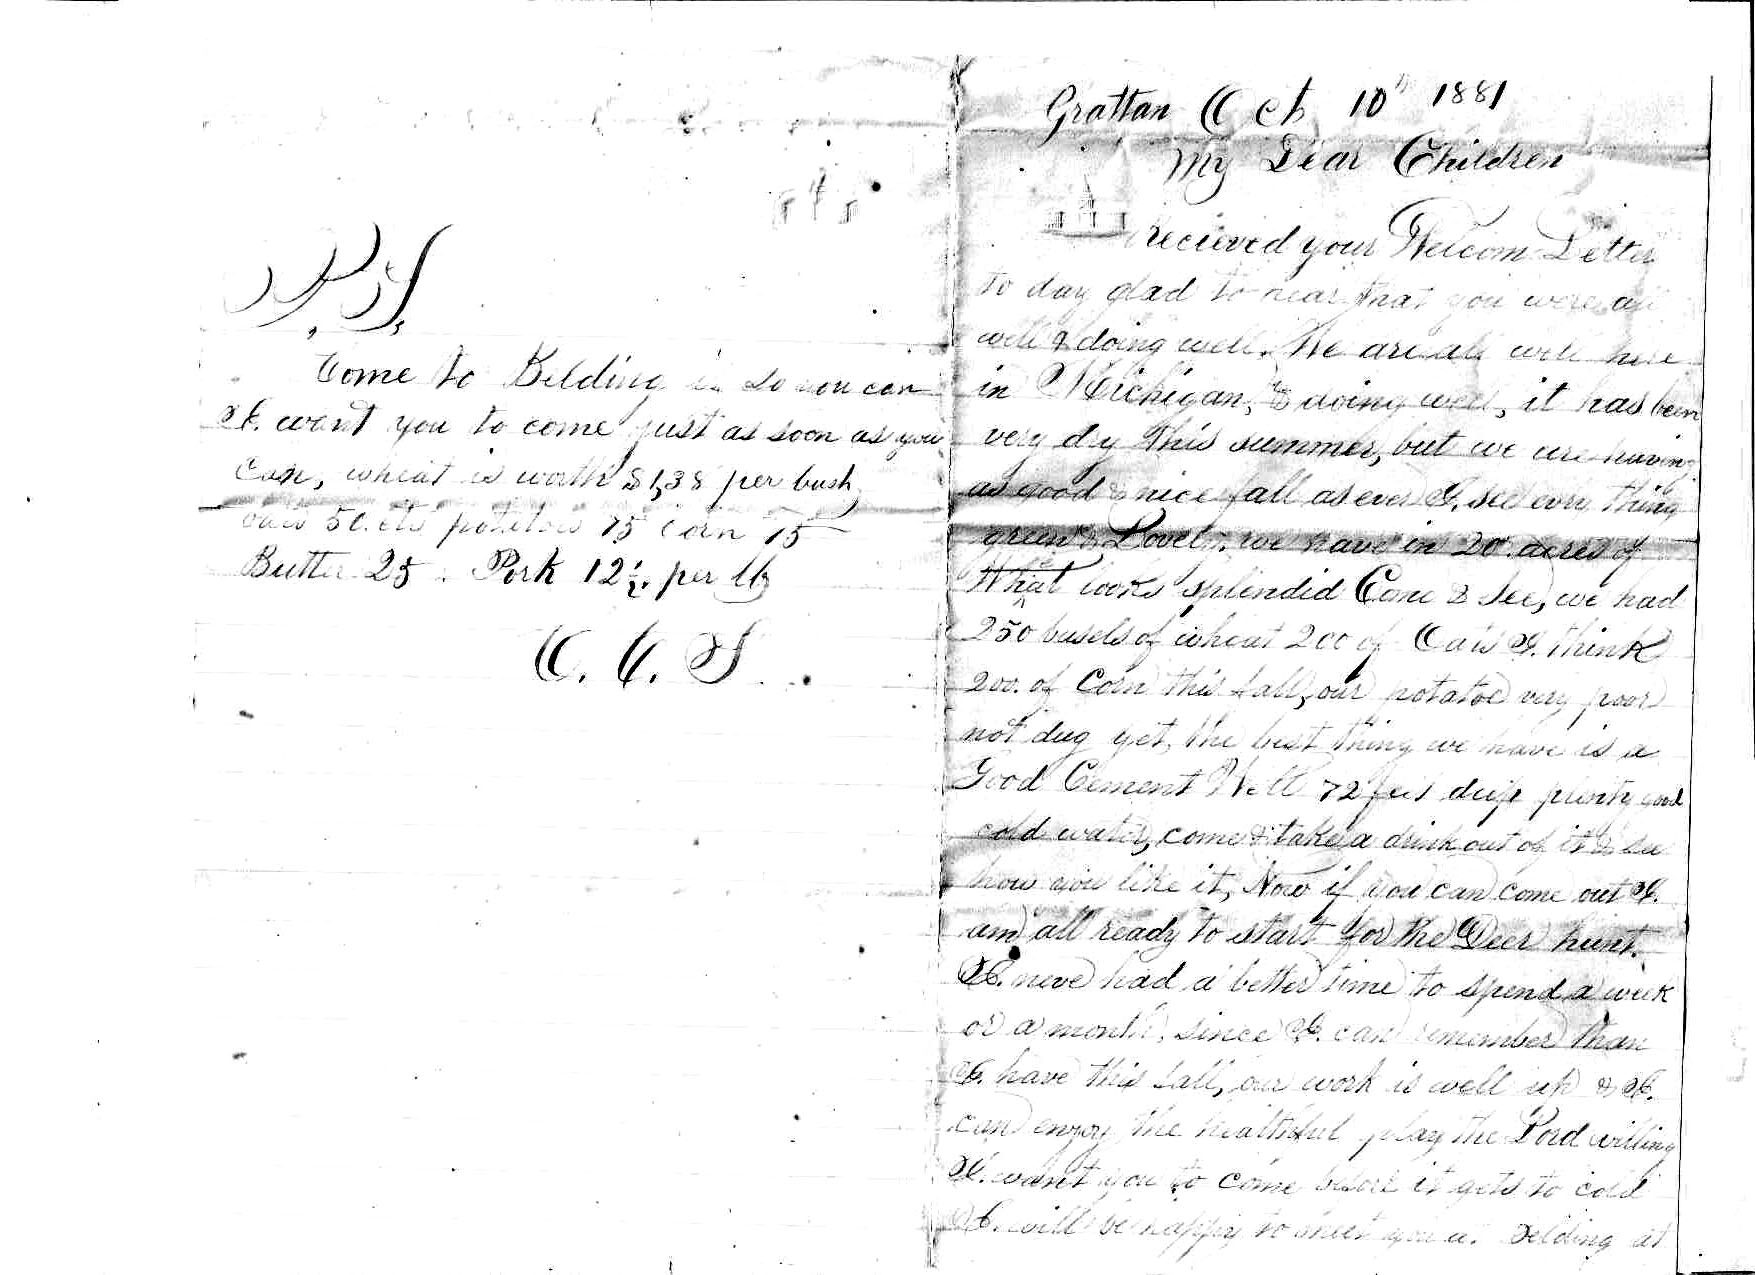 Grattan Oct 10th 1881
My Dear Children
I recieved your Welcom Letter
to day glad to hear that you were all
well & doing well. We are all well here
in Michigan, & doing well, it has been
very dry this summer, but we are having
as good & nice fall as ever I. see evry thing
green & Lovely. we have in 20 acres of
What looks splendid Come & See, we had
250 busels of wheat 200 of Oats I. think
200. of Corn this fall, our potatoe very poor
not dug yet, the best thing we have is a
Good Cement Well 72 feet deep plenty good
cold water, come & take a drink out of it & see
how you like it, Now if you can come out I.
am all ready to start for the Deer hunt.
I. neve had a better time to spend a week
or a month, since I. can remember than
I. have this fall, our work is well up & I.
can enjoy the healthful play the Lord willing
I. want you to come before it gets to cold
I. will be happy to meet you at Belding at
P.S.
Come to Belding if so you can
I. want you to come just as soon as you
can, wheat is worth $1,38 per bush,
oats 50 cts potatoes 75 corn 75
Butter 25. Pork 12 1/2. per lb